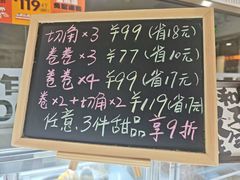 119
切角×3 ¥99(省18元)
卷卷×3 ¥77(省10元)
卷卷×4 ¥99(省17元)
卷×2+切角×2 ¥119(省1元)
任意3件甜品享9折